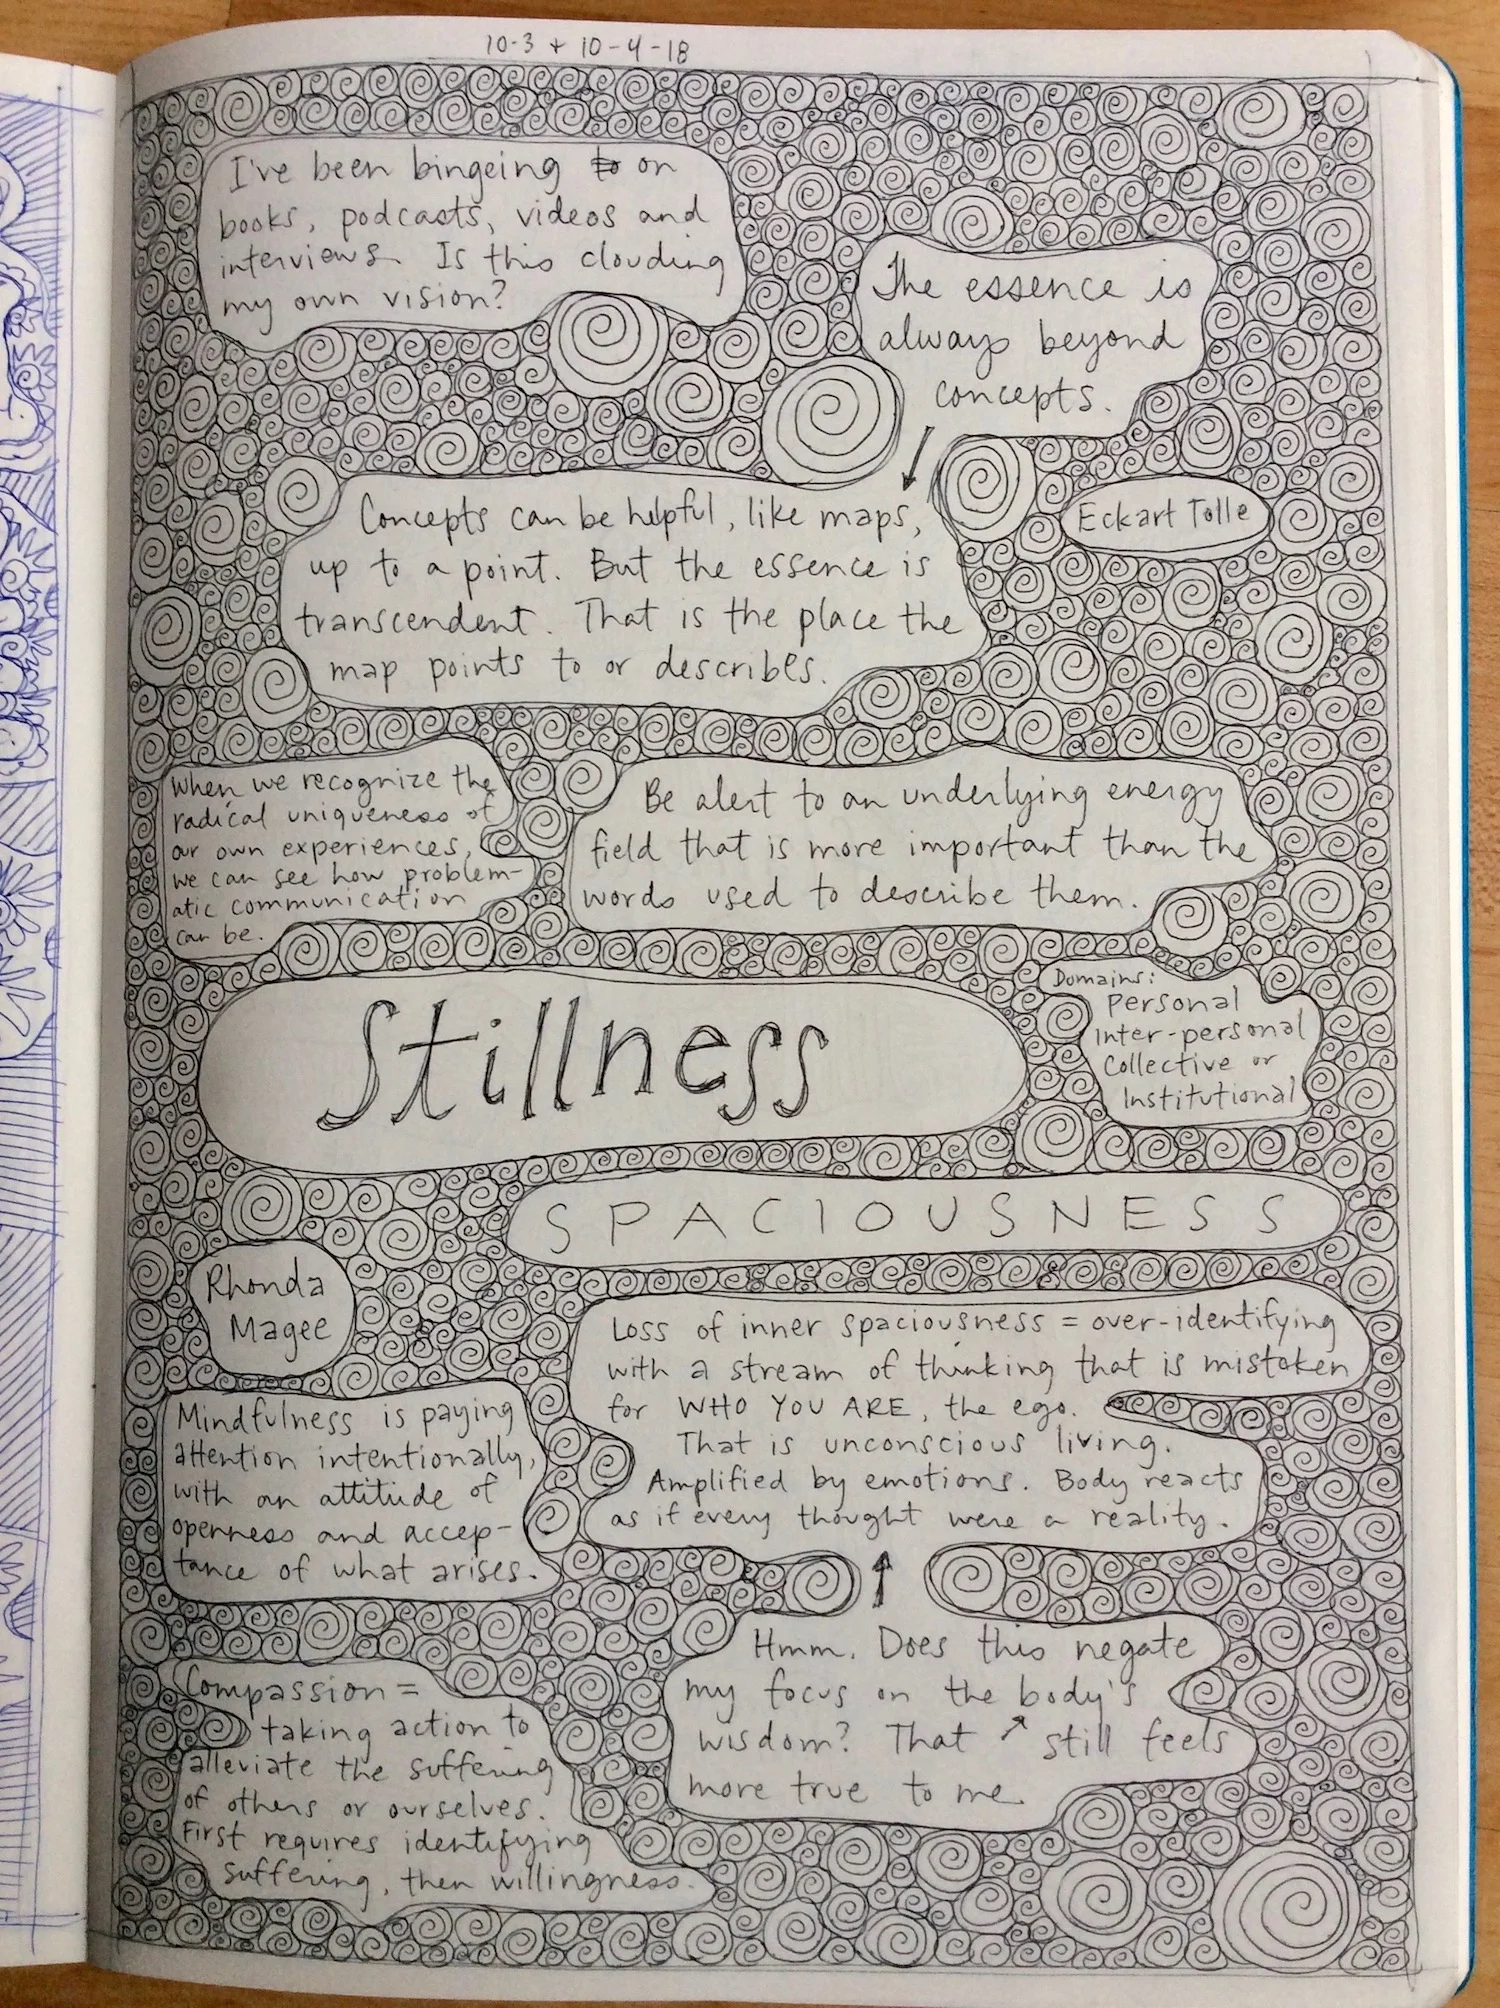 10-3 + 10-4-18
I've been bingeing to on
books, podcasts, videos and
interviews. Is this clouding
my own vision?
The essence is
always beyond
concepts.
Concepts can be helpful, like maps,
up to a point. But the essence is
transcendent. That is the place the
map points to or describes.
Eckart Tolle
When we recognize the
radical uniqueness of
our own experiences,
we can see how problem-
atic communication
can be.
Be alert to an underlying energy
field that is more important than the
words used to describe them.
Stillness
Domains:
Personal
Inter-personal
Collective or
Institutional
SPACIOUSNESS
Rhonda
Magee
Loss of inner spaciousness = over-identifying
with a stream of thinking that is mistaken
for WHO YOU ARE, the ego.
That is unconscious living.
Amplified by emotions. Body reacts
as if every thought were a reality.
Mindfulness is paying
attention intentionally,
with an attitude of
openness and accep-
tance of what arises.
Hmm. Does this negate
my focus on the body's
wisdom? That ↗ still feels
more true to me.
Compassion =
taking action to
alleviate the suffering
of others or ourselves.
First requires identifying
suffering, then willingness.